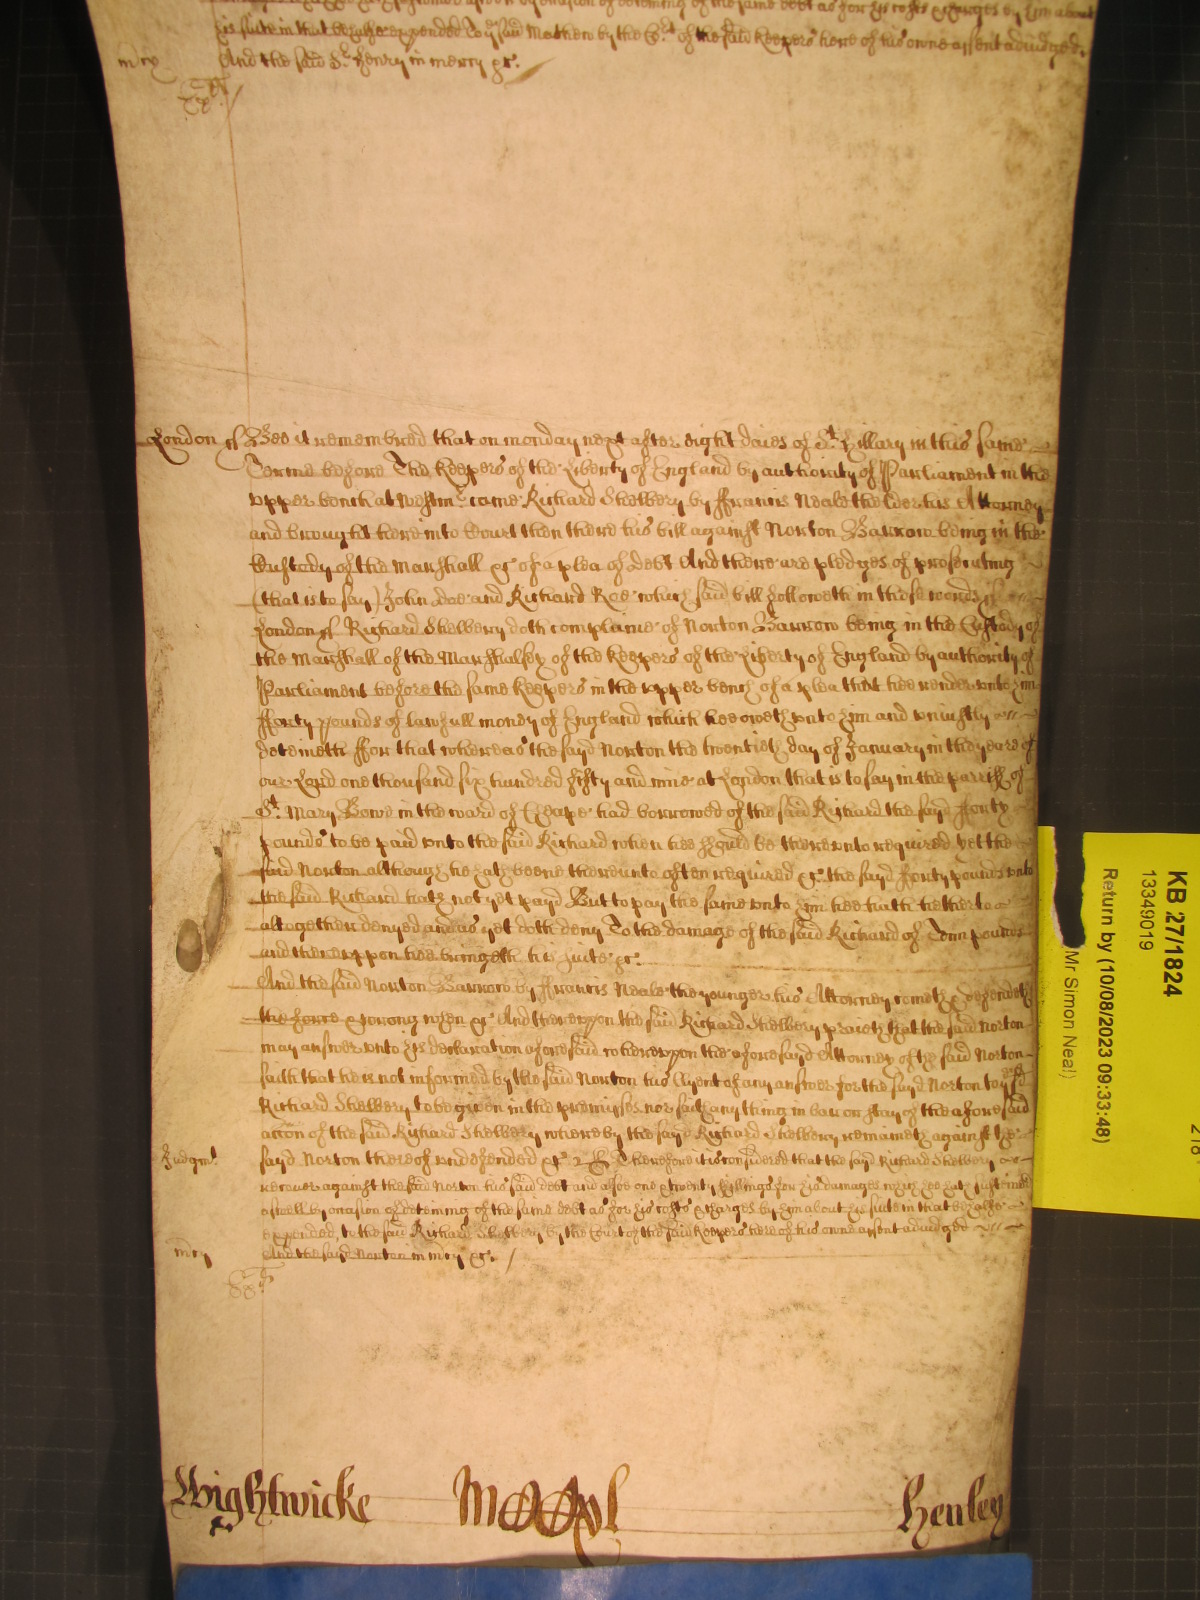 his suite in that behalfe expended to ye said Mathew by the Crt of the said Keepers here of his owne assent adiudged.
mcy And the said Sr Henry in mercy &c.
London ss Bee it remembred that on monday next after eight daies of St Hillary in this same
Terme before The Keepers of the Liberty of England by authority of Parliament in the
vpper bench at Westmr came Richard Skelbery by Ffrancis Neale the elder his Attorney
and brought here into Court then there his bill against Norton Barrow being in the
Custody of the Marshall &c of a plea of debt And there are pledges of prosecuting
(that is to say) John Doe and Richard Roe which said bill followeth in these words ss
London ss Richard Skelbery doth complaine of Norton Barrow being in the Custody of
the Marshall of the Marshalsey of the Keepers of the Liberty of England by authority of
Parliament before the same Keepers in the vpper bench of a plea that hee render vnto him
fforty pounds of lawfull money of England which hee oweth vnto him and vniustly
deteineth ffor that whereas the sayd Norton the twentieth day of January in the yeare of
our Lord one thousand six hundred fifty and nine at London that is to say in the parish of
St Mary Bowe in the ward of Cheape had borrowed of the said Richard the sayd fforty
pounds to be paid vnto the said Richard when hee should be therevnto required yet the
said Norton although he hath beene therevnto often required &c. the sayd fforty pounds vnto
the said Richard hath not yet payd But to pay the same vnto him hee hath hetherto
altogether denyed and as yet doth deny To the damage of the said Richard of Tenn pounds
and therevppon hee bringeth his suite &c.
And the said Norton Barrow by Ffrancis Neale the younger his Attorney cometh & defendeth
the force & wrong when &c And therevpon the said Richard Skelbery prayeth that the said Norton
may answer vnto his declaration aforesaid wherevpon the aforesayd Attorney of the said Norton
saith that he is not informed by the said Norton his Clyent of any answer for the sayd Norton to ye sd
Richard Skelbery to be given in the premisses nor saith any thing in barr or stay of the aforesaid
accon of the said Richard Skelbery whereby the sayd Richard Skelbery remaineth against the
Judgmt sayd Norton thereof vndefended &c Therefore it is considered that the sayd Richard Skelbery
recover against the said Norton his said debt and alsoe one & twenty shillings for his damages which hee hath susteined
aswell by occasion of deteining of the same debt as for his costs & charges by him about his suite in that behalfe
expended, to the said Richard Skelbery by the Court of the said Keepers here of his owne assent adiudged
mcy And the sayd Norton in mcy &c.
Wightwicke Henley
KB 27/1824
13349019
Return by (10/08/2023 09:33:48)
Mr Simon Neal)